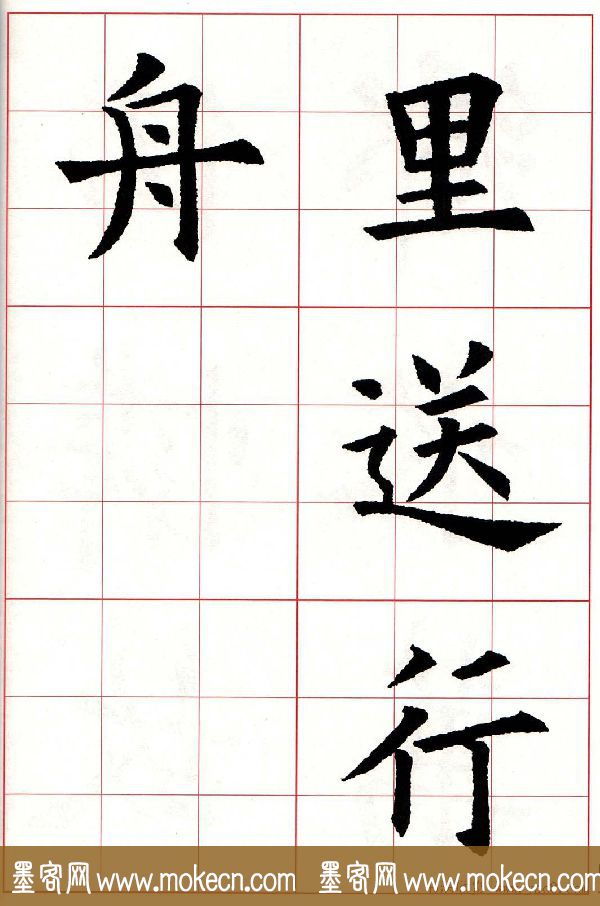 里送行
舟
墨客网 www.mokecn.com 墨客网 www.mokecn.com